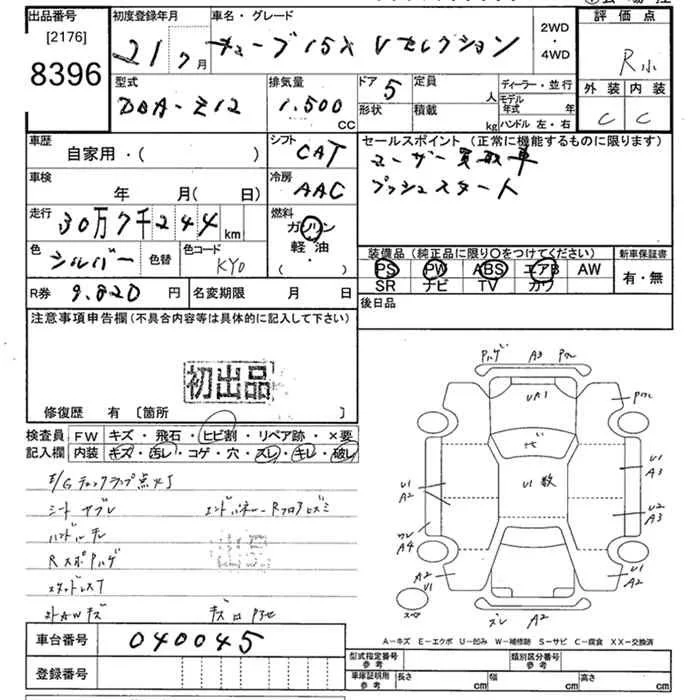 出品番号
[2176]
8396
初度登録年月
21 7月
車名・グレード
キューブ 15X Vセレクション
2WD
・
4WD
評価点
R
外装 内装
C C
型式
DBA-Z12
排気量
1.500
CC
ドア 5
形状
定員
人
積載
kg
ディーラー・並行
モデル年式 年
ハンドル 左・右
車歴
自家用・( )
シフト
CAT
セールスポイント (正常に機能するものに限ります)
ユーザー買取車
プッシュスタート
車検
年 月(日)
冷房
AAC
走行
30万7千244 km
燃料
ガソリン
軽・油
( ・ )
色
シルバー
色替
色コード
KY0
装備品 (純正品に限り○をつけてください)
PS PW ABS エアB AW
SR ナビ TV カワ
新車保証書
有・無
R券 9.820 円
名変期限 月 日
後日品
注意事項申告欄 (不具合内容等は具体的に記入して下さい)
初出品
修復歴 有 〔箇所 〕
検査員
記入欄
FW キズ・飛石・ヒビ割・リペア跡・×要
内装 キズ・汚レ・コゲ・穴・スレ・キレ・破レ
E/Gチェックランプ点灯
シートヤブレ
ハンドルチレ
RスポPハゲ
スタッドレス7
社外AWキズ
Pハゲ A3
UA1
U1 数
U1
A2
U1
A3
U2
A3
A4
A2
U1
U1
A2
スペア
ズレ A2
車台番号 040045
登録番号
A-キズ E-エクボ U-凹み W-補修跡 S-サビ C-腐食 XX-交換済
型式指定番号
参考
類別区分番号
参考
車庫証明用
参考
長さ cm
幅 cm
高さ cm